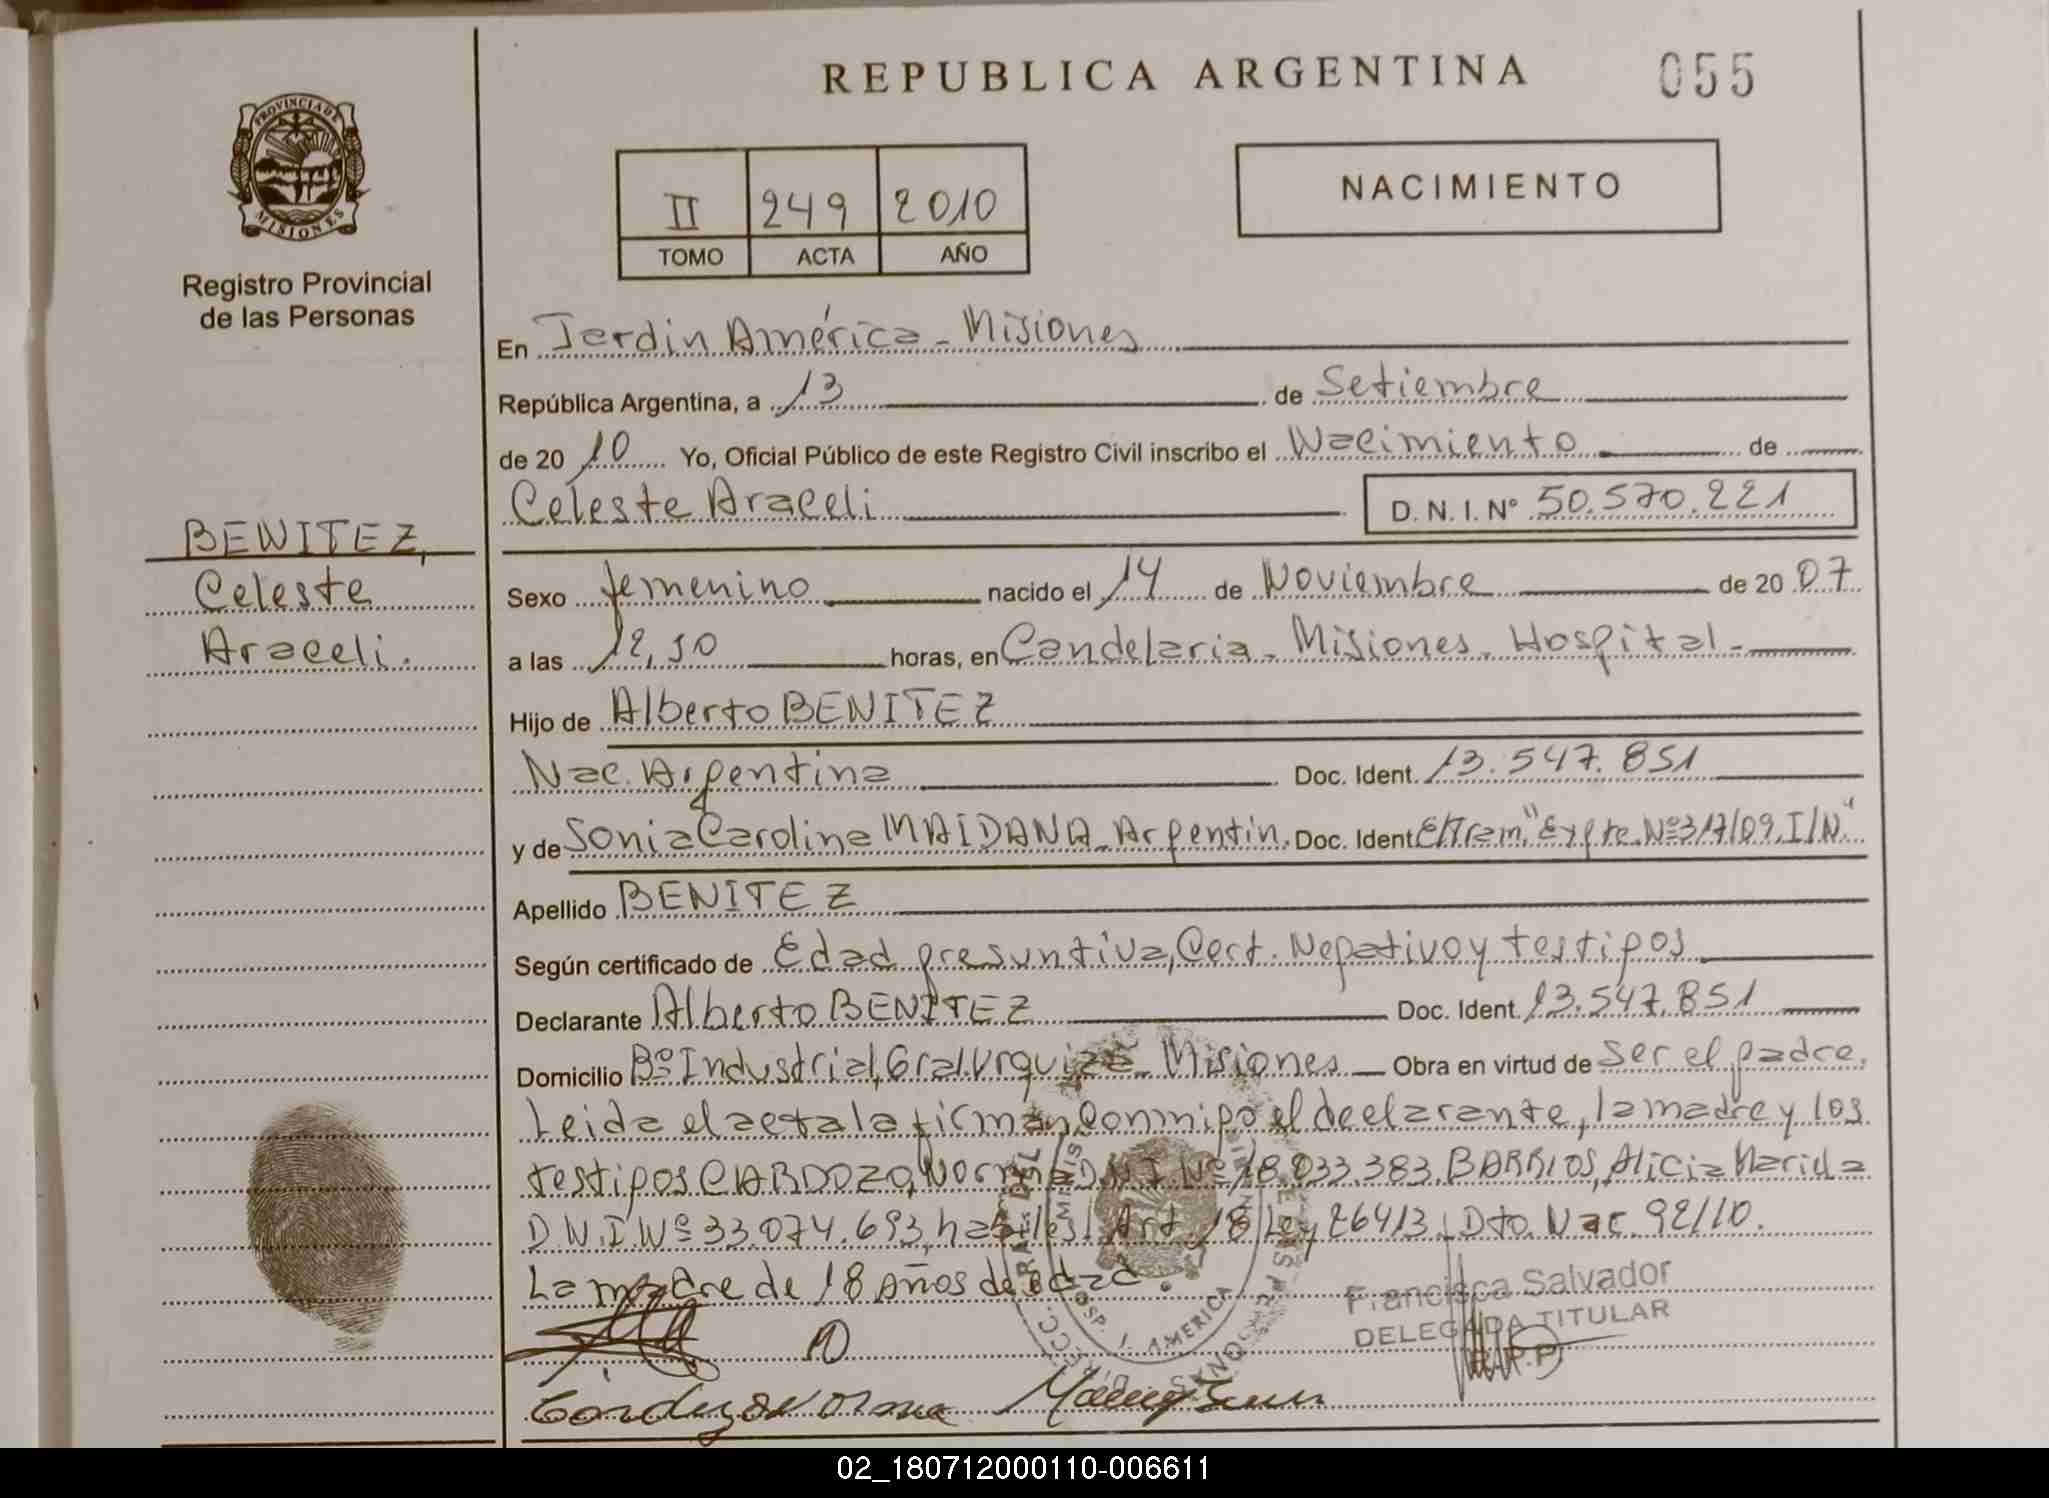 REPUBLICA ARGENTINA
055
PROVINCIA DE
MISIONES
Registro Provincial
de las Personas
II 249 2010
TOMO ACTA AÑO
NACIMIENTO
En Jardin América - Misiones
República Argentina, a 13 de Setiembre
de 20 10 Yo, Oficial Público de este Registro Civil inscribo el Nacimiento de
Celeste Araceli D.N.I. Nº 50.570.221
BENITEZ,
Celeste
Araceli.
Sexo femenino nacido el 14 de Noviembre de 20 07
a las horas, en Candelaria - Misiones - Hospital -
Hijo de Alberto BENITEZ
Nac. Argentina Doc. Ident. 13.547.851
y de Sonia Carolina MAIDANA - Argentin. Doc. Ident E/Tram. "Expte. Nº 317/09. I/N."
Apellido BENITEZ
Según certificado de Edad presuntiva, Cert. Negativo y testigos
Declarante Alberto BENITEZ Doc. Ident. 13.547.851
Domicilio Bº Industrial, Gral. Urquiza - Misiones Obra en virtud de ser el padre.
Leida el acta la firman conmigo el declarante, la madre y los
testigos CARDOZO, Norma D.N.I. Nº 18.033.383. BARRIOS, Alicia
D.N.I Nº 33.074.693, habiles. Art. 18 Ley 26413. Dto. Nac. 92/10.
La madre de 18 Años de edad.
Francisca Salvador
DELEGADA TITULAR
R.P.P
AMERICA
02_180712000110-006611